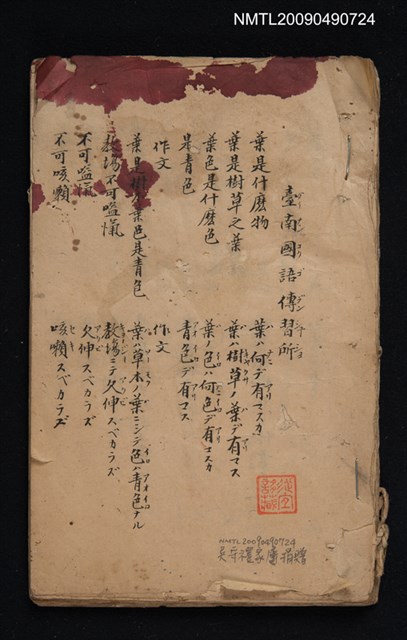 NMTL20090490724
臺南國語傳習所
葉是什麼物
葉ハ何デ有マスカ
葉是樹草之葉
葉ハ樹草ノ葉デ有マス
葉色是什麼色
葉ノ色ハ何色デ有マスカ
是青色
青色デ有マス
作文
作文
葉是樹草葉色是青色
葉ハ草木ノ葉ニシテ色ハ青色ナル
教場不可嗌愾
教場ニテ欠伸スベカラズ
不可嗌愾
欠伸スベカラズ
不可咳嚬
咳嚬スベカラズ
NMTL20090490724